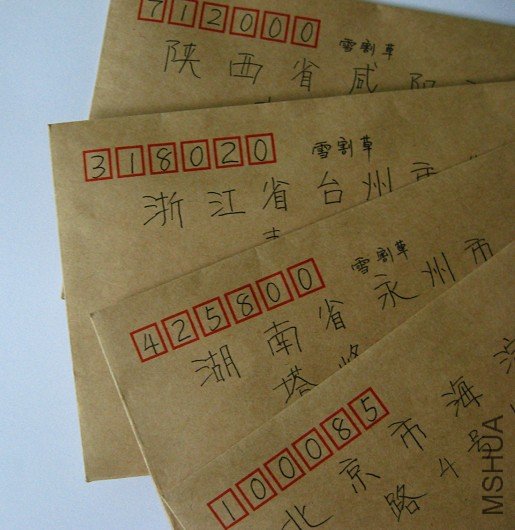 712000
雪割草
陕西省咸阳
318020
雪割草
浙江省台州市
425800
雪割草
湖南省永州市
塔峰
100085
北京市海淀
路4号
MSHUA